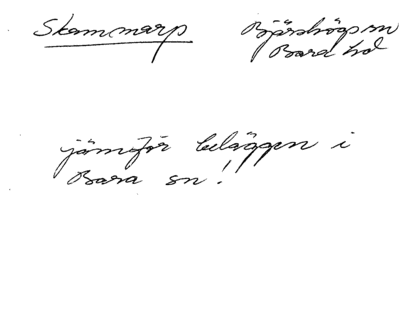 Skammarp Bjärshögs sn
Bara hd
jämför beläggen i
Bara sn!